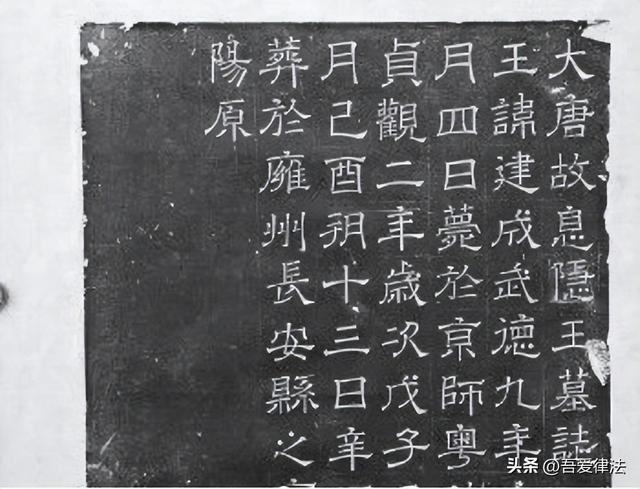 大唐故息隱王墓誌
王諱建成武德九年
月四日薨於京師粵
貞觀二年歲次戊子
月己酉朔十三日辛
葬於雍州長安縣之
陽原
头条 @吾爱律法